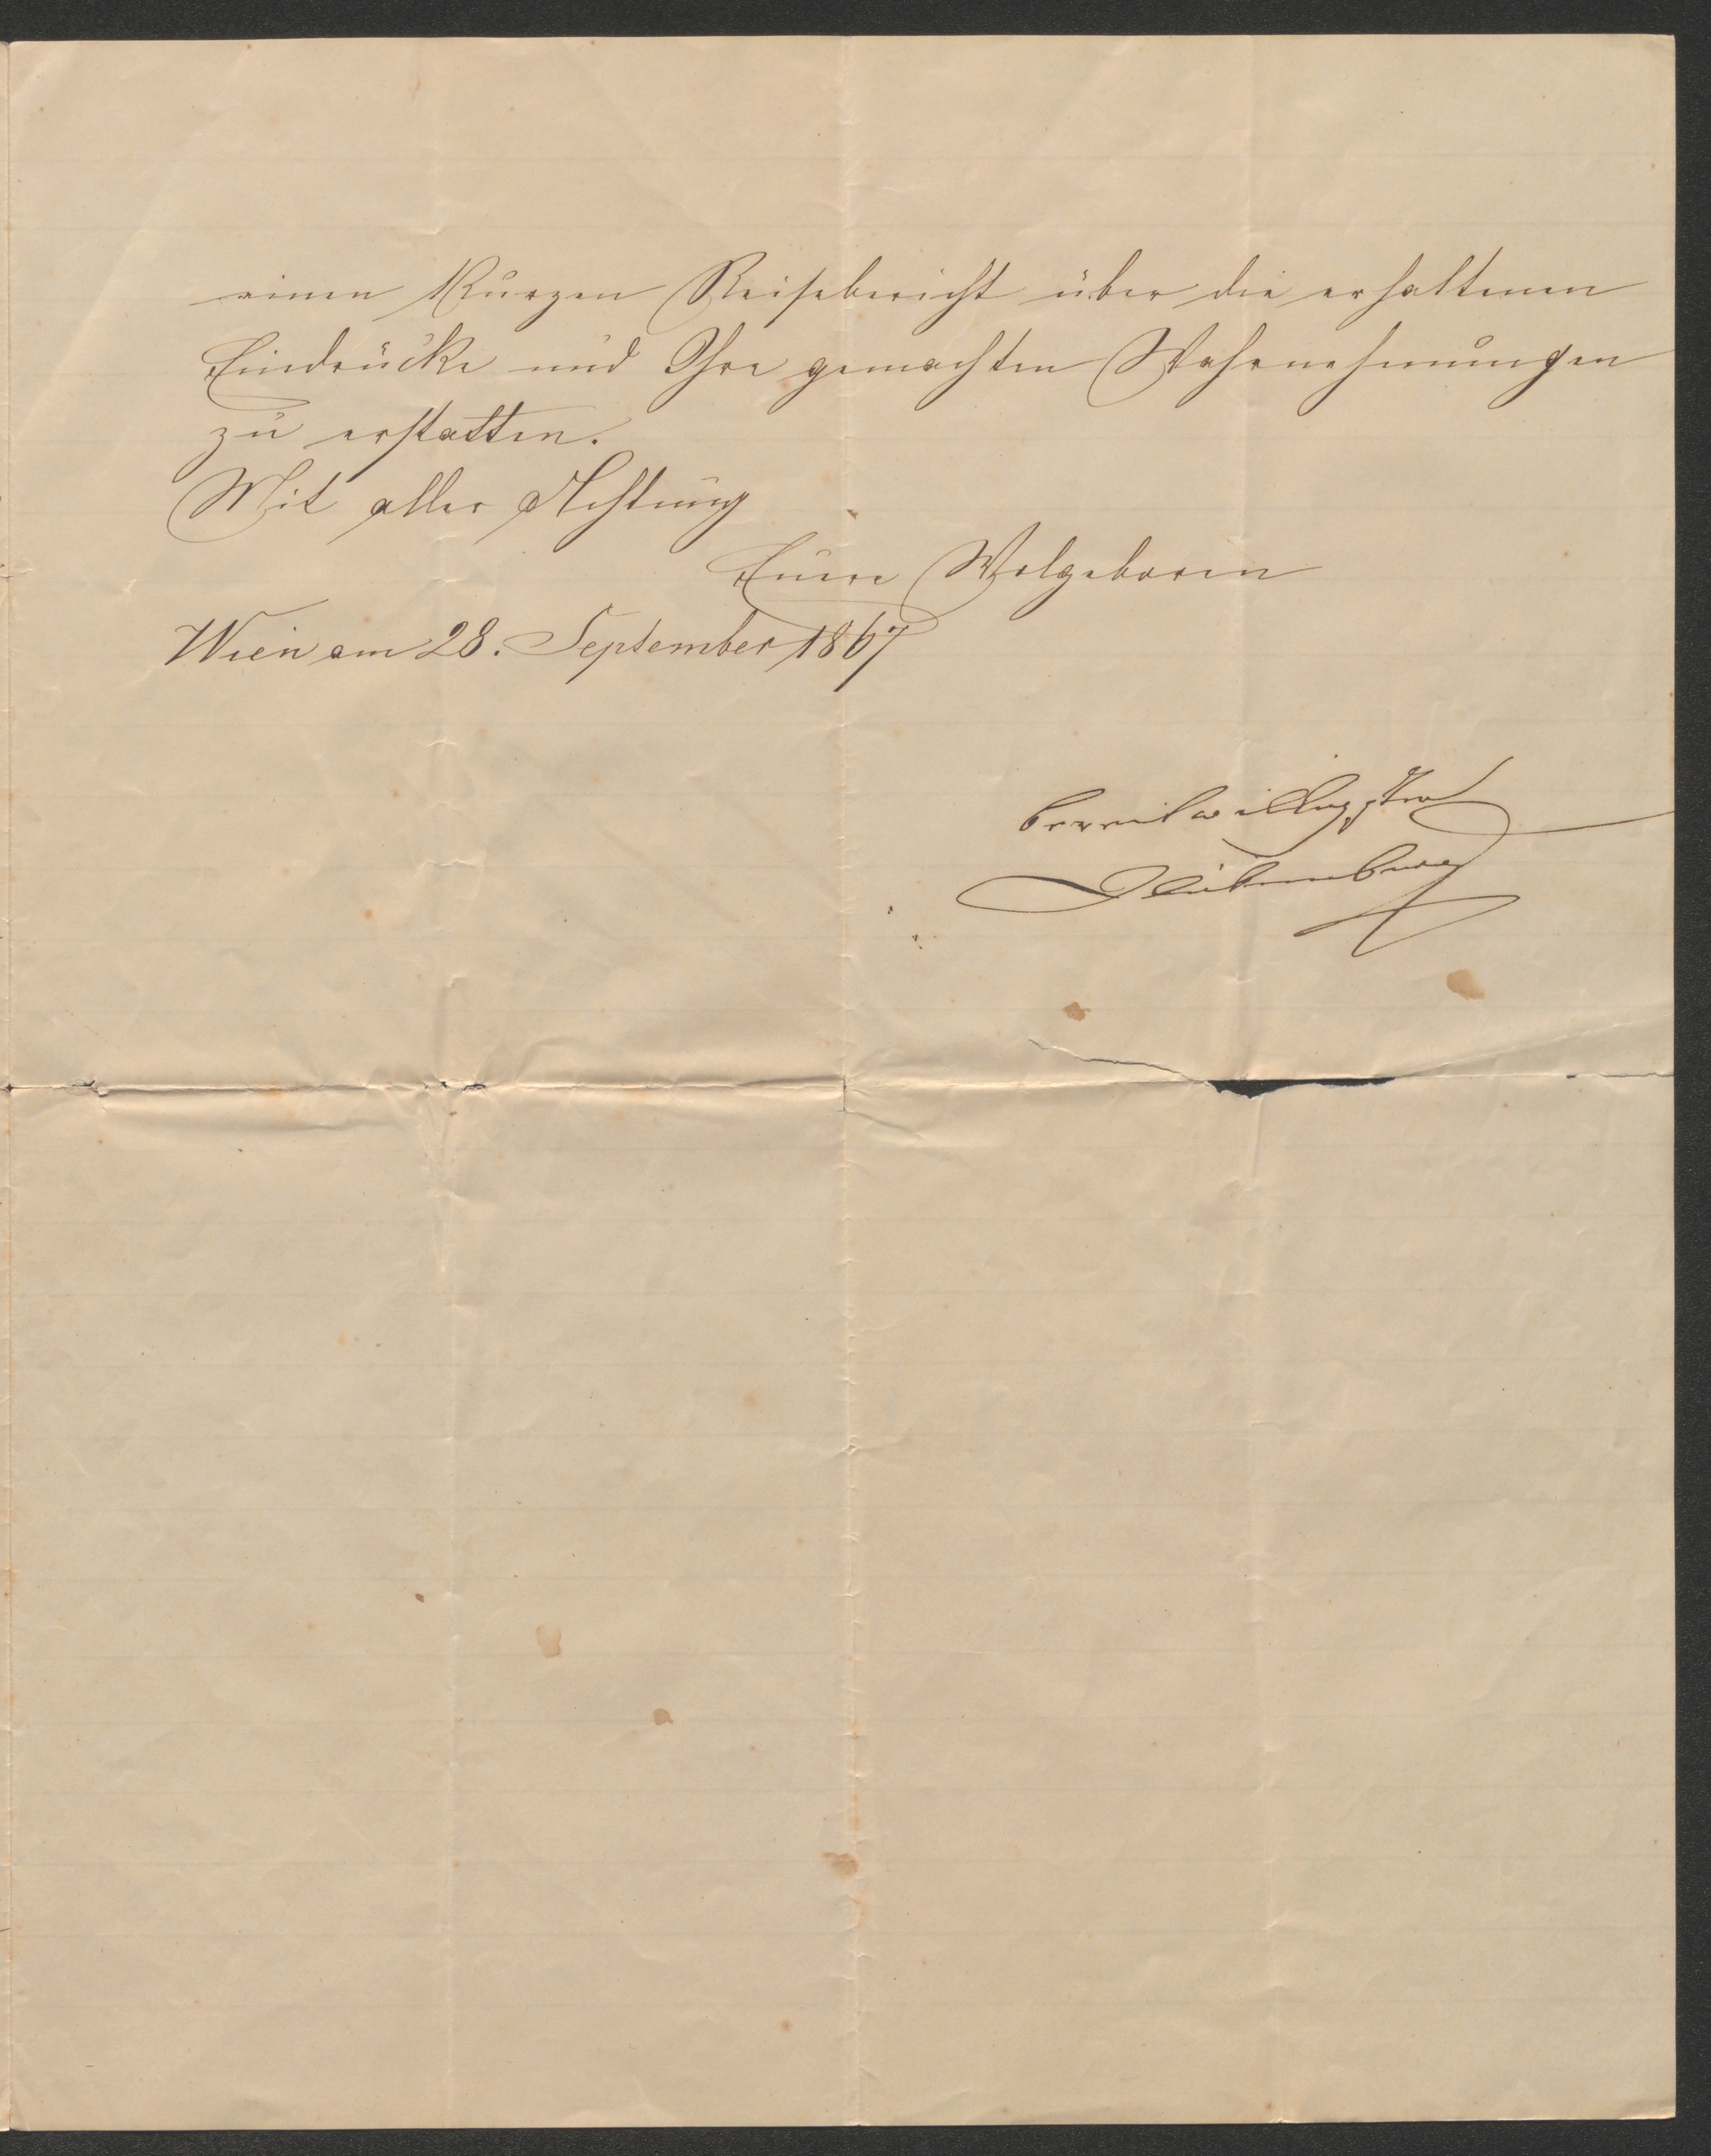 einen Kurzen Reisebericht über die erhaltenen
Eindrücke und Ihre gemachten Wahrnehmungen
zu erstatten.
Mit aller Achtung
Euere Wolgeboren
Wien am 28. September 1867
bereitwilligster